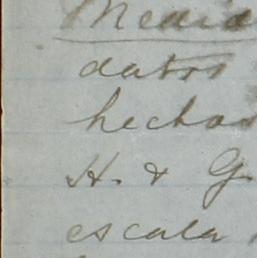 Media
datos
hechas
H. & G.
escala